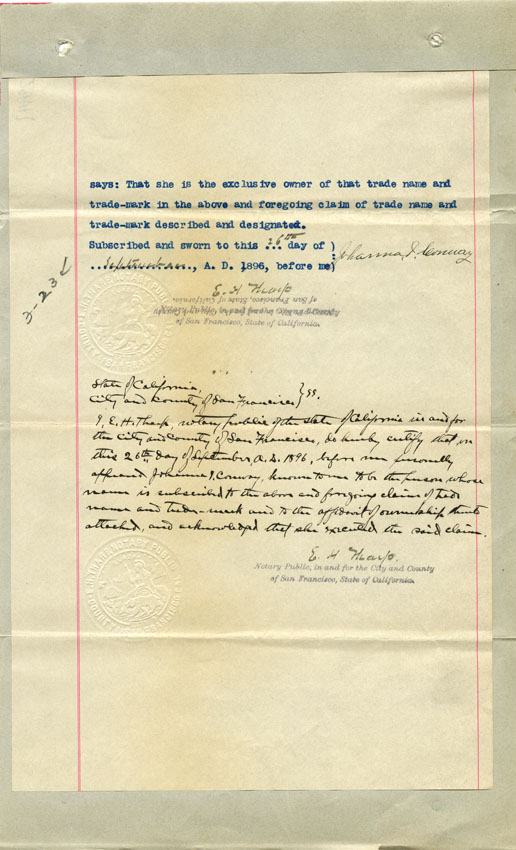 says: That she is the exclusive owner of that trade name and
trade-mark in the above and foregoing claim of trade name and
trade-mark described and designated.
Subscribed and sworn to this 26th day of )
September, A. D. 1896, before me)
Johanna I. Conway
E. H. Tharp
Notary Public, in and for the City and County
of San Francisco, State of California.
State of California,
City and County of San Francisco } ss.
I, E. H. Tharp, notary public of the State of California in and for
the City and County of San Francisco, do hereby certify that on
this 26th day of September A.D. 1896, before me personally
appeared Johanna I. Conway, known to me to be the person whose
name is subscribed to the above and foregoing claim of trade
name and trade-mark and to the affidavit of ownership thereto
attached, and acknowledged that she executed the said claim.
E. H. Tharp.
Notary Public, in and for the City and County
of San Francisco, State of California.